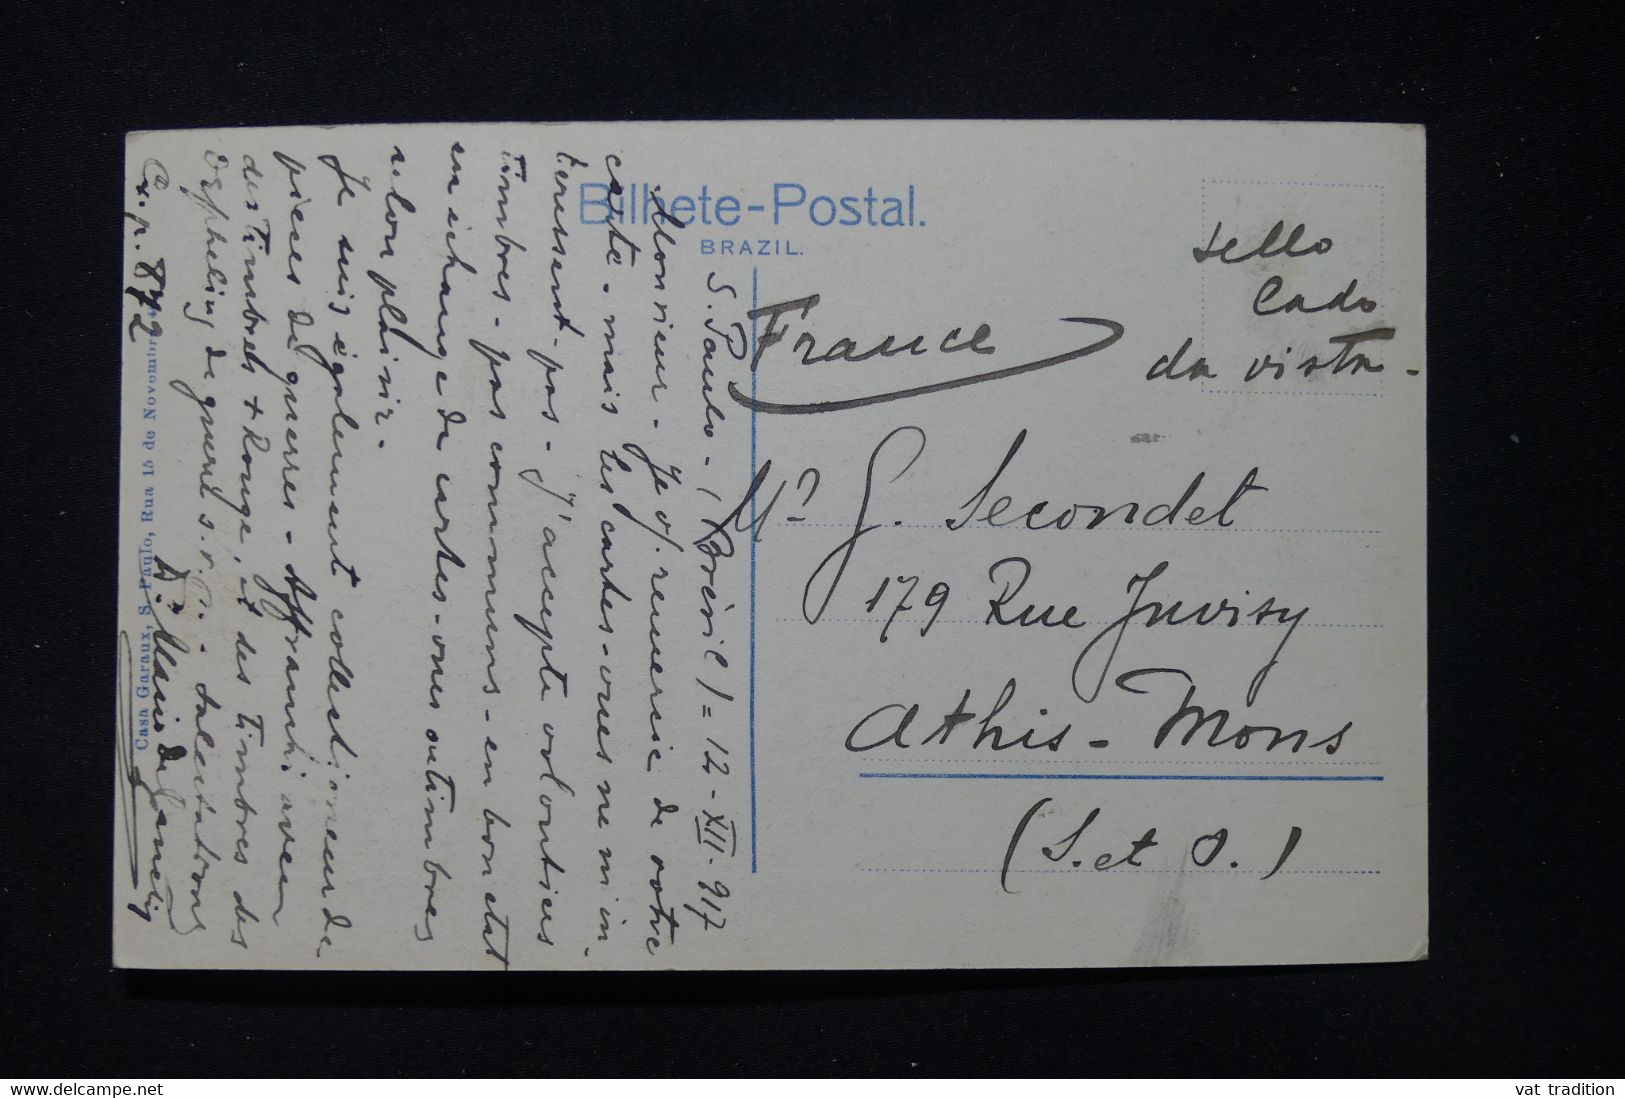 Bilhete-Postal.
BRAZIL.
sello
Lado
da vista.
France
Mr G. Secondet
179 Rue Juvisy
Athis-Mons
(S. et O.)
S. Paulo - (Brésil) = 12-XII-917
Monsieur - Je v/. remercie de votre
carte - mais les cartes-vues ne m'in-
teressent pas - J'accepte volontiers
timbres - pas communs - en bon état
en échange de cartes-vues ou timbres
selon plaisir.
Je suis également collectionneur de
pièces de guerres - Affranchi avec
des Timbres + Rouge, et des timbres des
Orphelins de guerre s.v.p. - Salutations
Cx. p. 872
Casa Garaux, S. Paulo, Rua 15 de Novembro